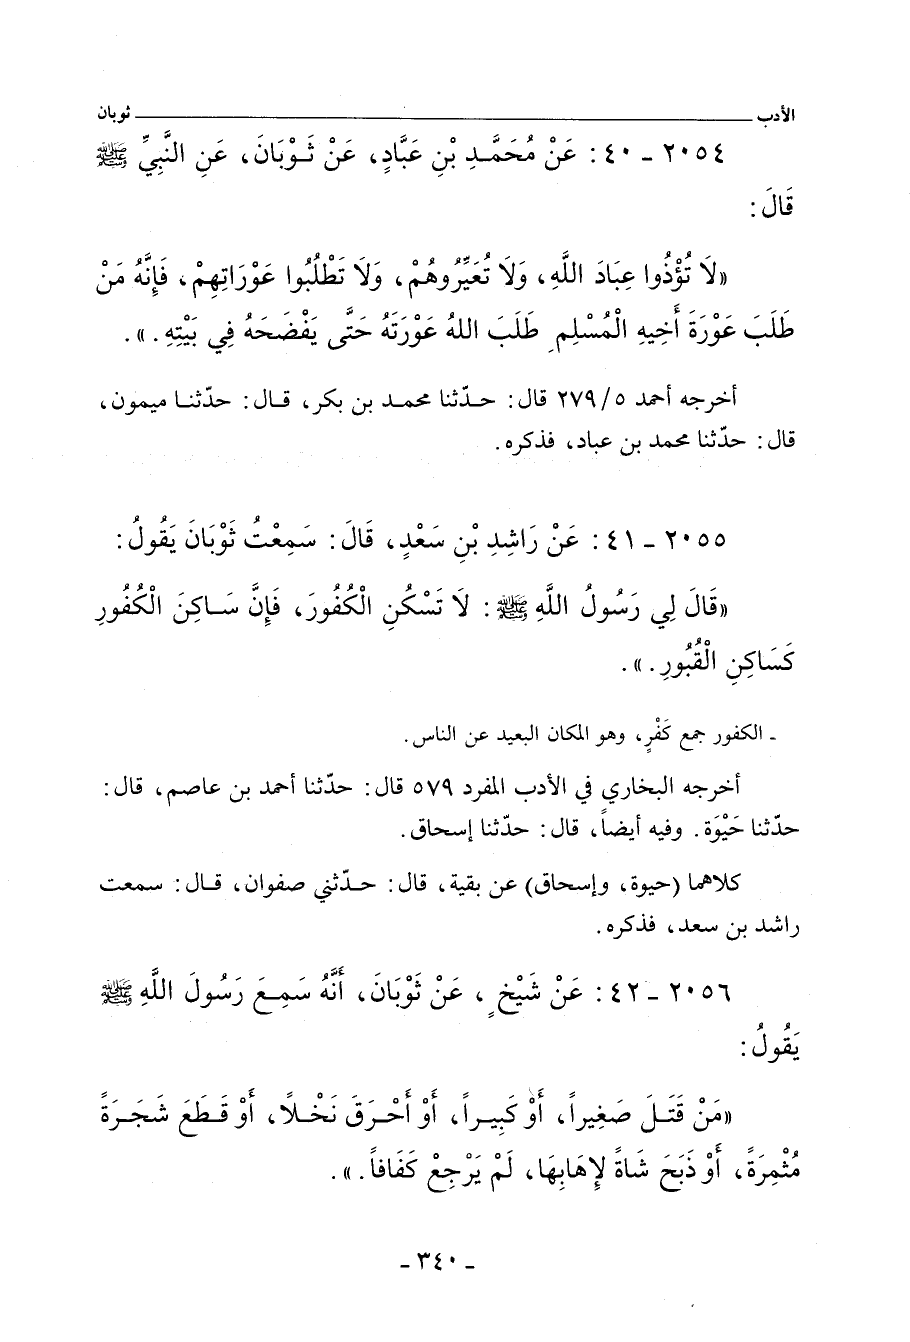 الأدب ـــــــــ ثوبان
٢٠٥٤ ـ ٤٠ : عَنْ مُحَمَّدِ بْنِ عَبَّادٍ، عَنْ ثَوْبَانَ، عَنِ النَّبِيِّ ﷺ
قَالَ :
«لَا تُؤْذُوا عِبَادَ اللَّهِ، وَلَا تُعَيِّرُوهُمْ، وَلَا تَطْلُبُوا عَوْرَاتِهِمْ، فَإِنَّهُ مَنْ
طَلَبَ عَوْرَةَ أَخِيهِ الْمُسْلِمِ طَلَبَ اللهُ عَوْرَتَهُ حَتَّى يَفْضَحَهُ فِي بَيْتِهِ .» .
أخرجه أحمد ٢٧٩/٥ قال : حدّثنا محمد بن بكر، قال : حدّثنا ميمون،
قال : حدّثنا محمد بن عباد، فذكره .
٢٠٥٥ ـ ٤١ : عَنْ رَاشِدِ بْنِ سَعْدٍ، قَالَ : سَمِعْتُ ثَوْبَانَ يَقُولُ :
«قَالَ لِي رَسُولُ اللَّهِ ﷺ : لَا تَسْكُنِ الْكُفُورَ، فَإِنَّ سَاكِنَ الْكُفُورِ
كَسَاكِنِ الْقُبُورِ .» .
ـ الكفور جمع كَفْرٍ، وهو المكان البعيد عن الناس .
أخرجه البخاري في الأدب المفرد ٥٧٩ قال : حدّثنا أحمد بن عاصم، قال :
حدّثنا حَيْوَة . وفيه أيضاً، قال : حدّثنا إسحاق .
كلاهما (حيوة، وإسحاق) عن بقية، قال : حدّثني صفوان، قال : سمعت
راشد بن سعد، فذكره .
٢٠٥٦ ـ ٤٢ : عَنْ شَيْخٍ ، عَنْ ثَوْبَانَ، أَنَّهُ سَمِعَ رَسُولَ اللَّهِ ﷺ
يَقُولُ :
«مَنْ قَتَلَ صَغِيراً، أَوْ كَبِيراً، أَوْ أَحْرَقَ نَخْلًا، أَوْ قَطَعَ شَجَرَةً
مُثْمِرَةً، أَوْ ذَبَحَ شَاةً لِإِهَابِهَا، لَمْ يَرْجِعْ كَفَافاً .» .
ـ ٣٤٠ ـ